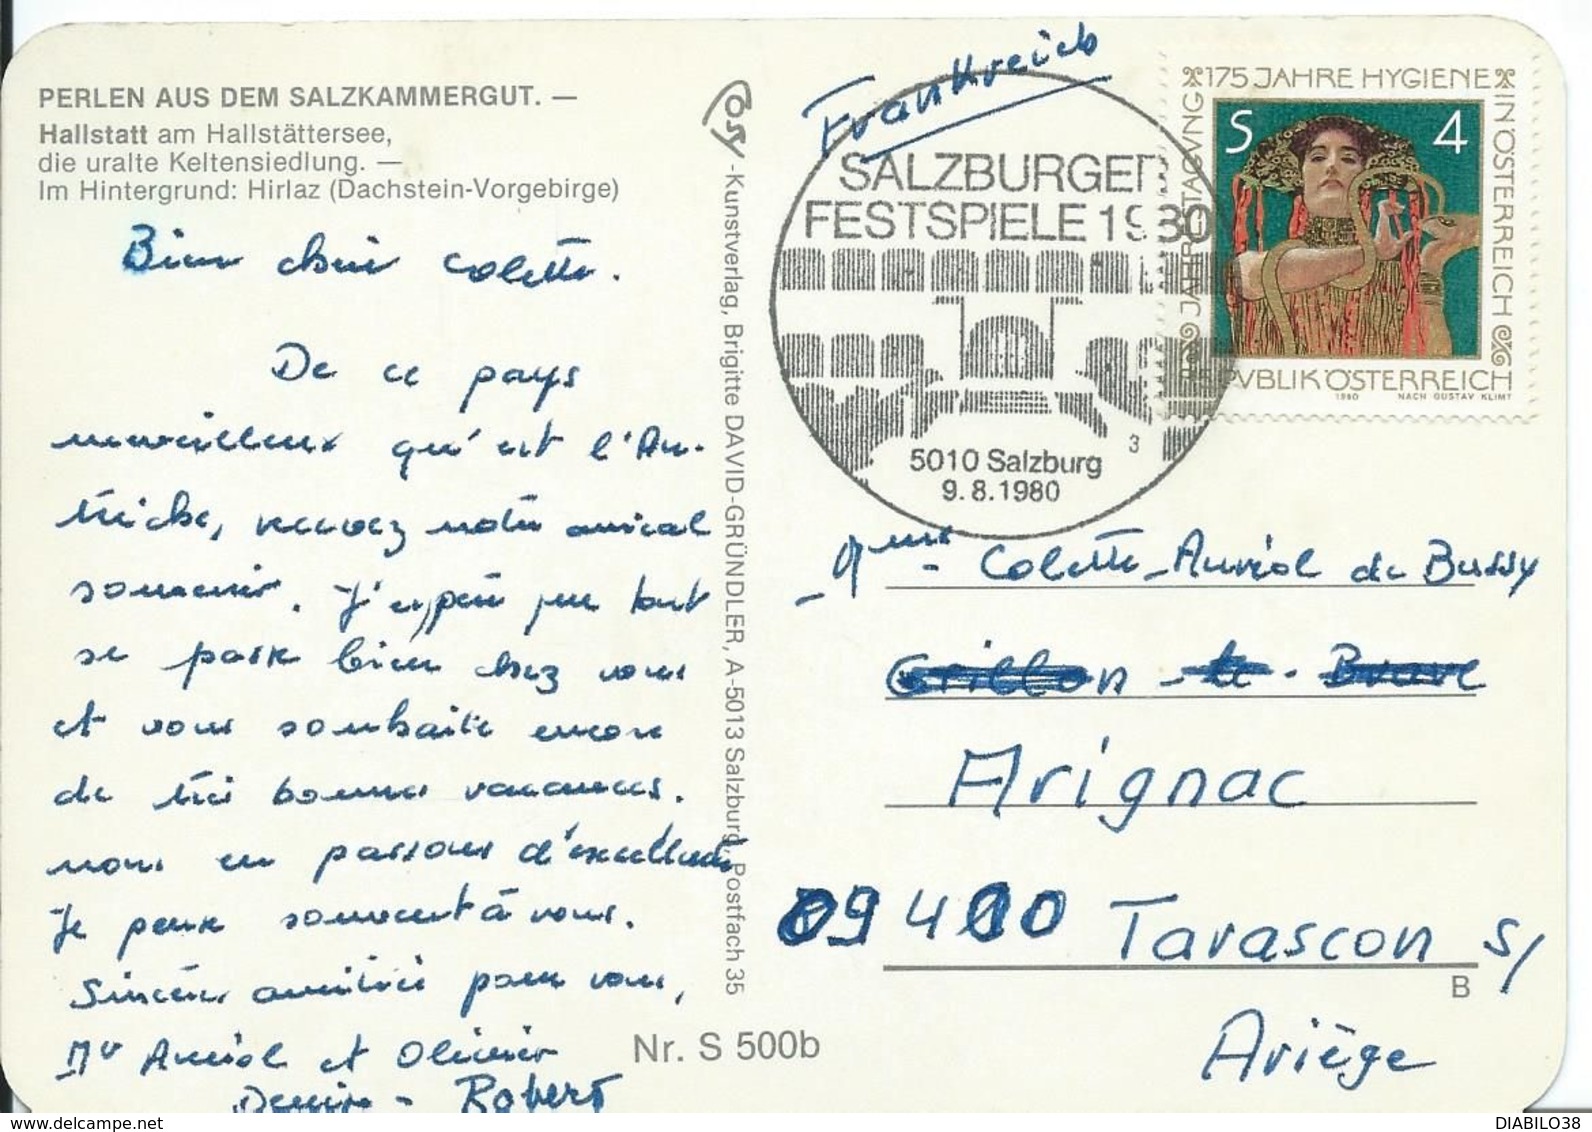 PERLEN AUS DEM SALZKAMMERGUT. —
Hallstatt am Hallstättersee,
die uralte Keltensiedlung. —
Im Hintergrund: Hirlaz (Dachstein-Vorgebirge)
Bien chère Colette.
De ce pays
merveilleux qu'est l'Au-
triche, recevez notre amical
souvenir. J'espère que tout
se passe bien chez vous
et vous souhaite encore
de très bonnes vacances.
nous en passons d'excellentes
Je pense souvent à vous.
Sincères amitiés pour vous,
Auriol et Olivier
Denise - Robert
Cosy-Kunstverlag, Brigitte DAVID-GRÜNDLER, A-5013 Salzburg, Postfach 35
Nr. S 500b
Frankreich
SALZBURGER
FESTSPIELE 1980
5010 Salzburg
9.8.1980
3
175 JAHRE HYGIENE
IN ÖSTERREICH
JAHRESTAGVNG
S 4
REPVBLIK ÖSTERREICH
1980 NACH GUSTAV KLIMT
Mme Colette Auriol de Bussy
Crillon - le - Brave
Arignac
09400 Tarascon s/
B
Ariège
www.delcampe.net
DIABILO38